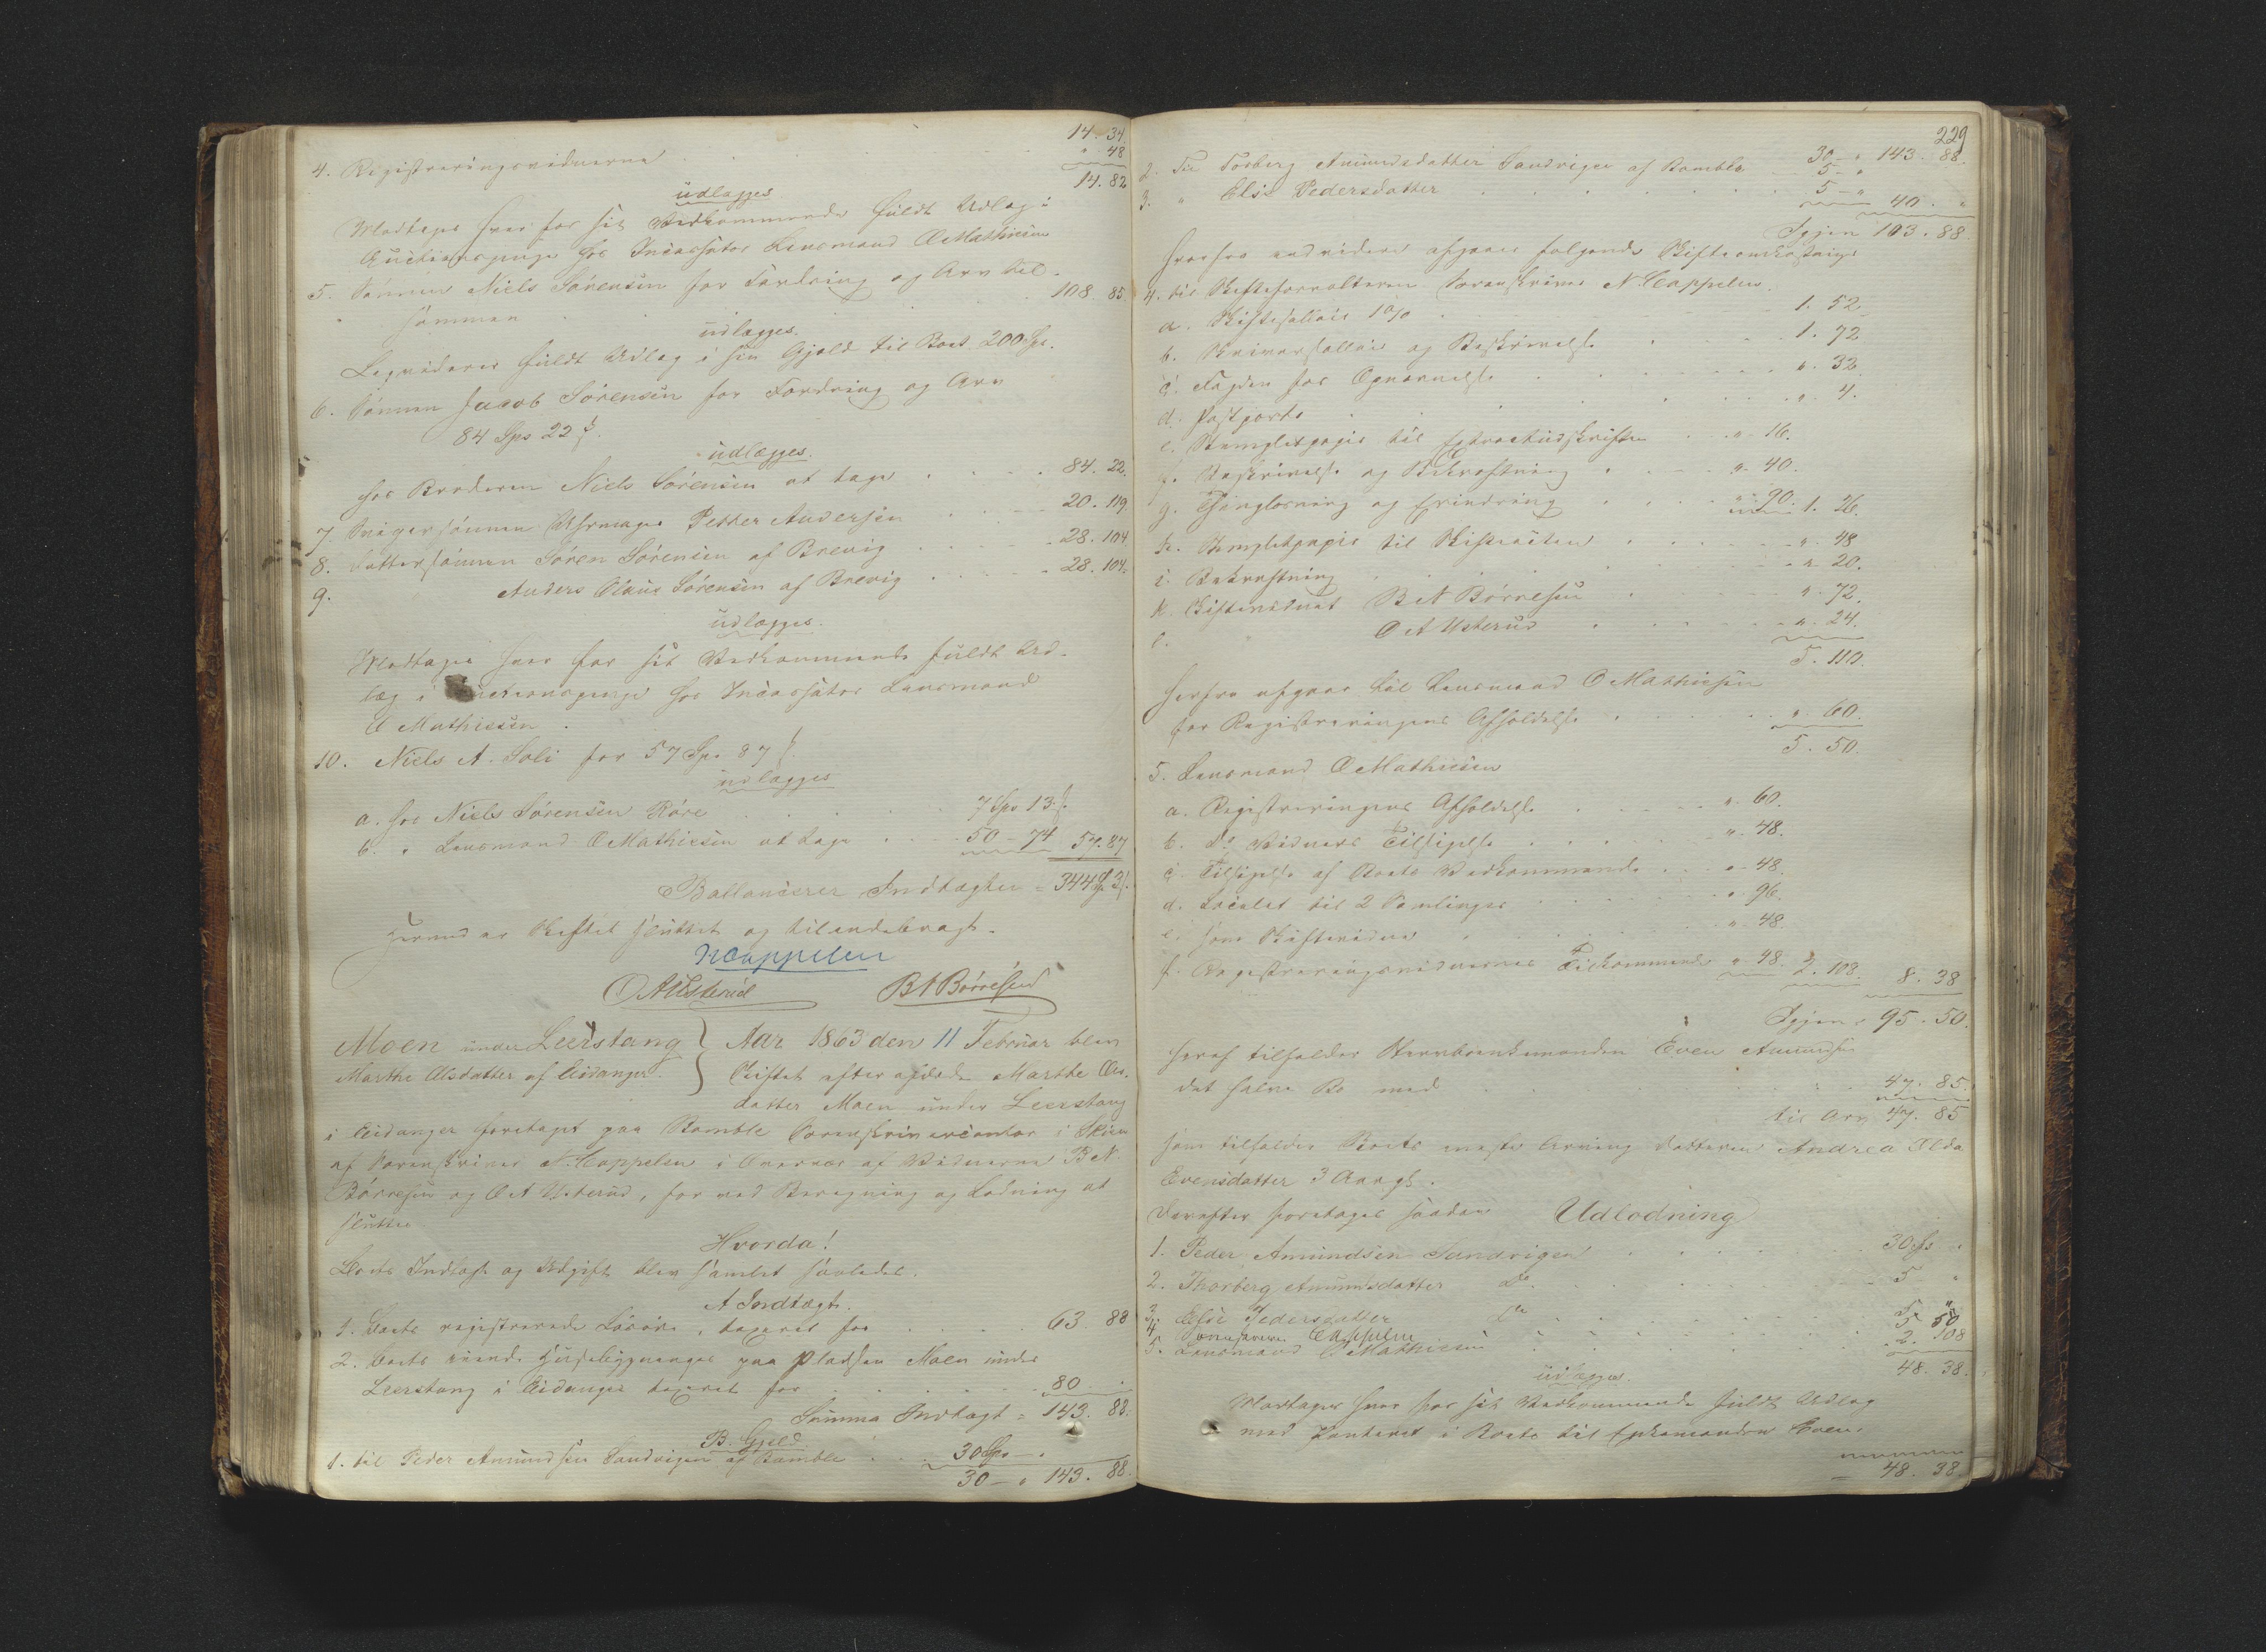 14. 34
4. Registreringsvidnerne . . . . " 48
14. 82
udlægges
Modtage hver for sit Vedkommende fuldt Udlæg i
Auctionspenge hos Incassator Lensmand O Mathiesen
5. Sønnen Niels Sørensen for Fordring og Arv til-
sammen . . . 108. 85
udlægges.
Leqviderer fuldt Udlæg i sin Gjæld til Boet 200 Spd.
6. Sønnen Jacob Sørensen for Fordring og Arv
84 Spd 22 ſ.
udlægges.
hos Broderen Niels Sørensen at tage . . . 84. 22.
7. Svigersønnen Uhrmager Petter Andersen . . . 20. 119
8. Dattersønnen Søren Sørensen af Brevig . . . 28. 104
9. Anders Olaus Sørensen af Brevig . . . 28. 104.
udlægges.
Modtage hver for sit Vedkommende fuldt Ud-
læg i Auctionspenge hos Incassator Lensmand
O Mathiesen.
10. Niels A. Soli for 57 Spd 87 ſ.
udlægges
a. hos Niels Sørensen Røre . . . 7 Spd 13 ſ.
b. " Lensmand O Mathiesen at tage . . . 50 - 74 57. 87
Ballancerer Indtægten = 344 Spd 3 ſ.
Hermed er Skiftet sluttet og tilendebragt.
NCappelen
O A Usterud B N Børresen
Moen under Leerstang
Marthe Olsdatter af Eidanger.
Aar 1863 den 11 Februar blev
Skiftet efter afdøde Marthe Ols-
datter Moen under Leerstang
i Eidanger foretaget paa Bamble Sorenskrivercontor i Skien
af Sorenskriver N. Cappelen i Overvær af Vidnerne B N
Børresen og O A Usterud, for ved Beregning og Lodning at
sluttes.
Hvorda!
Boets Indtægt og Udgift blev samlet saaledes.
A Indtægt.
1. Boets registrerede Løsøre, taxeret for . . . 63. 88
2. Boets eiende Huseliggnenger paa Pladsen Moen under
Leerstang i Eidanger taxeret for . . . 80 "
Summa Indtægt = 143. 88.
B. Gjeld
1. til Peder Amundsen Sandvigen af Bamble . . . 30 Spd - "
30 - " 143. 88.
229
30 - " 143. 88.
2. Til Torberg Amundsdatter Sandvigen af Bamble . 5 - "
3. " Else Pedersdatter . . . 5 - "
40. "
Igjen 103. 88
Herfra endvidere afgaaer følgende Skifteomkostninger
4. til Skifteforvalteren Sorenskriver N. Cappelen.
a. Skiftesallair 1 0/0 . . . 1. 52
b. Skriversallair og Beskrivelse . . . 1. 72
c. Fogden for Opnævnelse . . . ". 32
d. Postporto . . . ". 4.
e. Stempletpapir til Extractudskriften . . ". 16.
f. Beskrivelse og Bekræftning . . . ". 40.
g. Thinglæsning og Erindring . . . ". 90. 1. 26.
h. Stempletpapir til Skifteacten . . . ". 48
i. Bekræftning . . . ". 20.
k. Skiftevidnet B N Børresen . . . ". 72.
l. " O A Usterud . . . ". 24.
5. 110.
Herfra afgaaer til Lensmand O Mathiesen
for Registreringens Afholdelse . . . ". 60.
5. 50.
5. Lensmand O Mathiesen
a. Registreringens Afholdelse . . . ". 60.
b. Do Vidners Tilsigelse . . . ". 48.
c. Tilsigelse af Boets Vedkommende . . . ". 48.
d. Localet til 2 Samlinger . . . ". 96.
e. som Skiftevidne . . . ". 48.
f. Registreringsvidnernes Tilkommende " 48. 2. 108. 8. 38
Igjen 95. 50.
Heraf tilfalder Stervboenkemanden Even Amundsen
det halve Bo med . . . 47. 85.
til Arv 47. 85
som tilfalder Boets eneste Arving Datteren Andrea Elda
Evensdatter 3 Aar gl.
Derefter foretages saadan Udlodning
1. Peder Amundsen Sandvigen . . . 30 Spd "
2. Thorberg Amundsdatter do . . . 5 "
3. Else Pedersdatter do . . . 5. "
4. Sorenskriver Cappelen . . . 5. 50
5. Lensmand O Mathiesen . . . 2. 108
48. 38.
udlægges.
Modtager hver for sit Vedkommende fuldt Udlæg
med Panteret i Boets til Enkemanden Even.
= 48. 38.